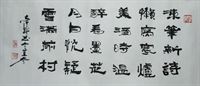 凍筆新詩
懶寫寒爐
美酒時溫
醉看墨花
月白恍疑
雪滿前村